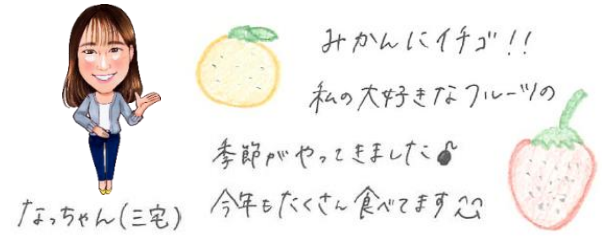 みかんにイチゴ!!
私の大好きなフルーツの
季節がやってきました♪
今年もたくさん食べてます^^
なっちゃん(三宅)